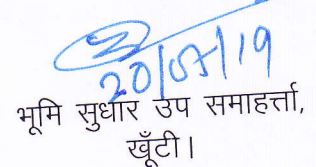 20/07/19
भूमि सुधार उप समाहर्त्ता,
खूँटी।